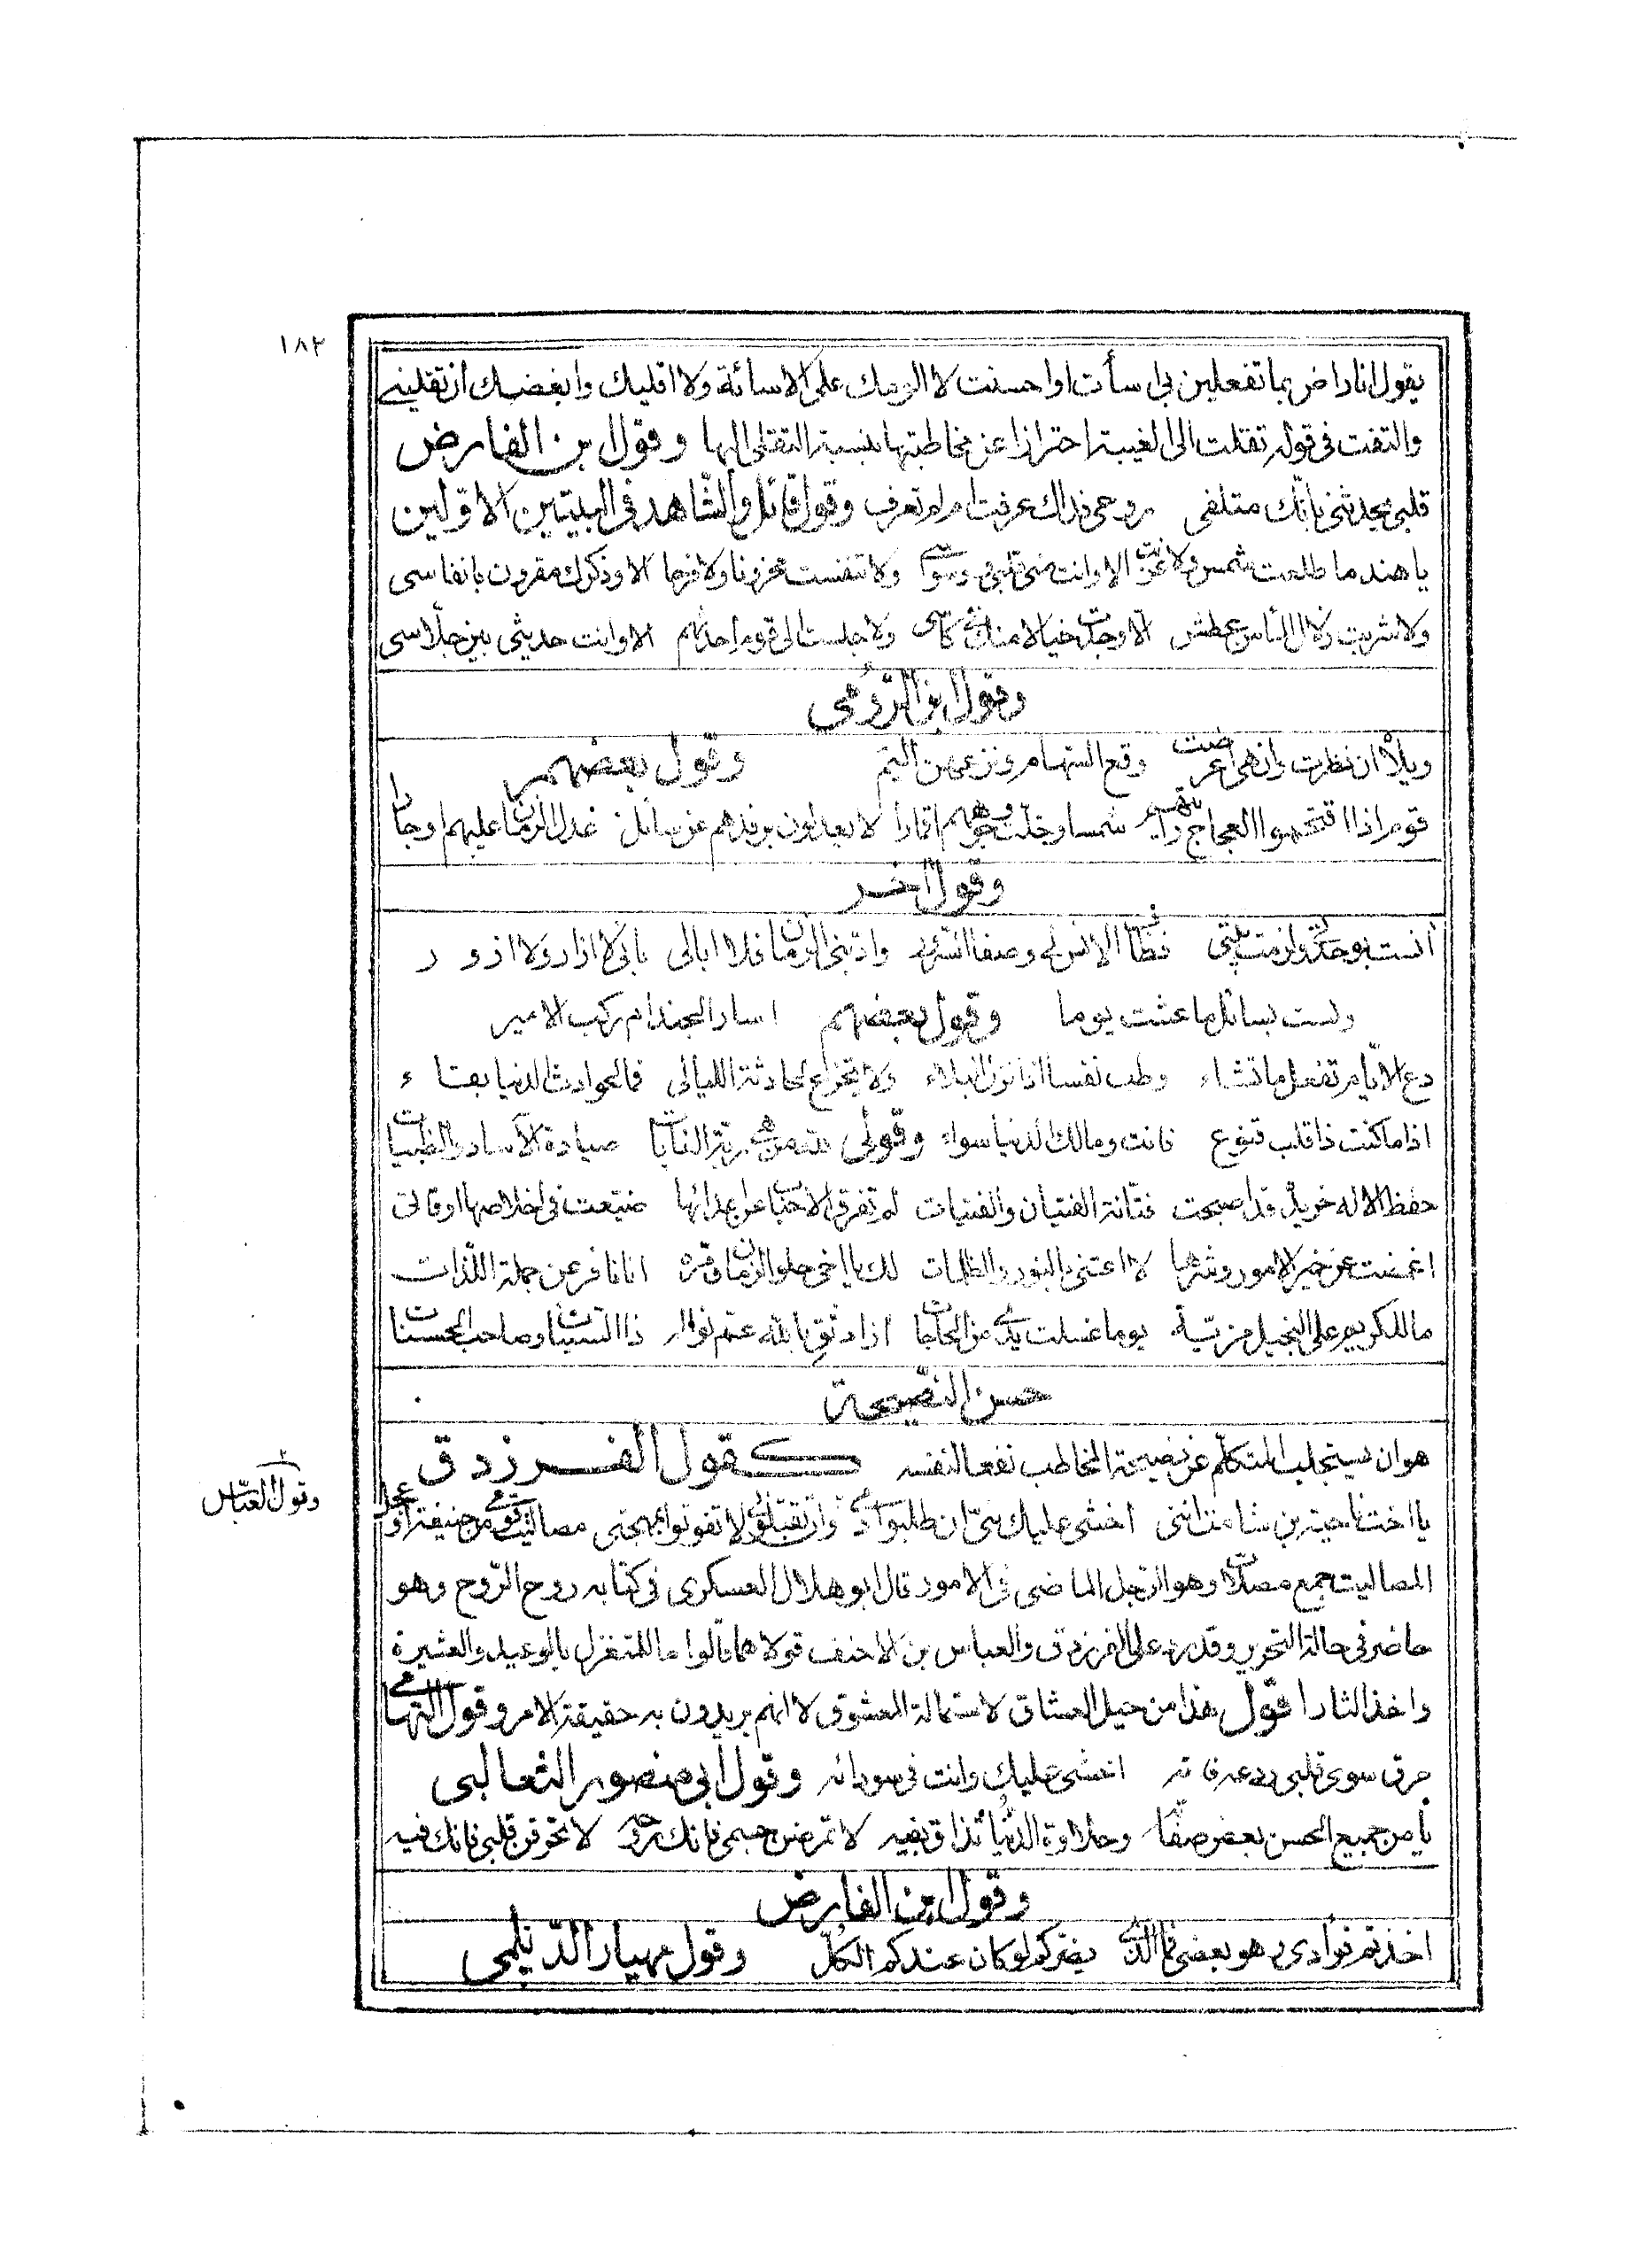 ١٨٢
يقول انا راض بما تفعلين بي اسأت او احسنت لا الومك على الاسائة ولا اقليك وابغضك ان تقلينى
والتفت فى قوله تقلت الى الغيبة احترازا عن مخاطبتها بنسبة التقلى اليها وقول بن الفارض
قلبى يحدثنى بانّك متلفى روحى فداك عرفت ام لم تعرف وقول قائل والشاهد فى البيتين الاوّلين
يا هند ما طلعت شمس ولا غربت الا وانت منى قلبى ووسواسى ولا تنفست محزونا ولا فرحا الا وذكرك مقرون بانفاسى
ولا شربت زلال الماس عطش الا وجدت خيالا منك فى كاسى ولا جلست الى قوم احدثهم الا وانت حديثى بين جلّاسى
وقول ابن الرّومى
ويلاه ان نظرت وان هى اعرضت وقع السّهام ونزعهن اليم وقول بعضهم
قوم اذا اقتحموا العجاج رأيتهم شمسا وخلت وجوههم اقمارا لا يعدلون برفدهم عن سائل عدل الزمان عليهم او جارا
وقول اخر
انست بوحدتى ولزمت بيتى فطاب الانس لى وصفا السّرور وادّبنى الزمان فلا ابالى بانى لا ازار ولا ازور
ولست بسائل ما عشت يوما اسار الجند ام ركب الامير وقول بعضهم
دع الايّام تفعل ما تشاء وطب نفسا اذا نزل البلاء ولا تجزع لحادثة الليالى فما لحوادث الدنيا بقاء
اذا ما كنت ذا قلب قنوع فانت ومالك الدنيا سواء وقولى صيادة الآساد والظبيات
حفظ الاله خريدة قد اصبحت فتّانة الفتيان والفتيات لم تفرق الاحباب عن اعدائها ضيّعت فى اخلاصها اوقاتى
اغمضت عن خير الامور وشرها لا اعتنى بالنور والظلمات لك يا اخى حلو الزمان ومرّه انا نافر عن جملة اللّذات
ما للكريم على البخيل مزيّة يوما غسلت يدى من الحاجات اذا وثق بالله عمّ نواله ذا السيئات وصاحب الحسنات
حسن النّصيحة
هو ان يستجلب المتكلّم عن نصيحة المخاطب نفعا لنفسه كقول الفرزدق
يا اخت ناجية بن سامة اننى اخشى عليك بنىّ ان طلبوا دمى
وقول العبّاس
وان تقتلونى لا تفوتوا بمهجتى مصاليت قومى من حنيفة او عجل
المصاليت جمع مصلات وهو الرّجل الماضى فى الامور قال ابو هلال العسكرى فى كتابه روح الرّوح وهو
حاضر فى حالة التحرير وقد رد على الفرزدق والعباس بن الاحنف قولاهما وقالوا ما للمتغزل بالوعيد والعشيرة
واخذ الثار اقول هذا من حيل العشاق لاستمالة المعشوق لا انهم يريدون به حقيقة الامر وقول التهامى
حرق سوى قلبى ودعه فانه اخشى عليك وانت فى سودائه وقول ابى منصور الثعالبى
يا من جميع الحسن بعض صفاته وحلاوة الدّنيا تذاق بفيه لا تمرضن جسمى فانك روحه لا تحرقن قلبى فانك فيه
وقول ابن الفارض
اخذتم فؤادى وهو بعضى فما الذى يضركم لو كان عندكم الكلّ وقول مهيار الدّيلمى